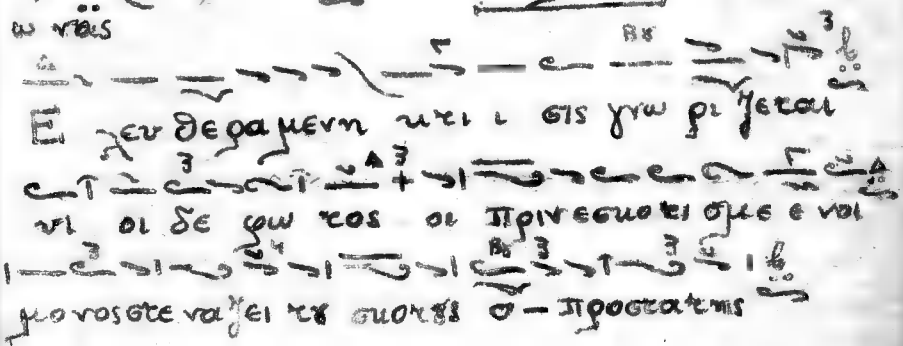 ω ναις
Ε λευ θε ρα μενη κτι ι σις γνω ρι ζεται
υι οι δε φω τος οι πριν εσκοτι σμε ε νοι
μονος στε να ζει του σκοτους ο προστατης